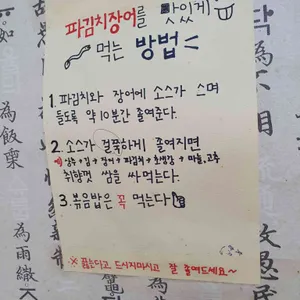 파김치장어를 맛있게
먹는 방법
1. 파김치와 장어에 소스가 스며
들도록 약 10분간 졸여준다.
2. 소스가 걸쭉하게 졸여지면
상추+김+장어+파김치+초생강+마늘,고추
취향껏 쌈을 싸먹는다.
3. 볶음밥은 꼭 먹는다
※ 끓는다고 드시지마시고 잘 졸여드세요~
為飯棗
為雨繖